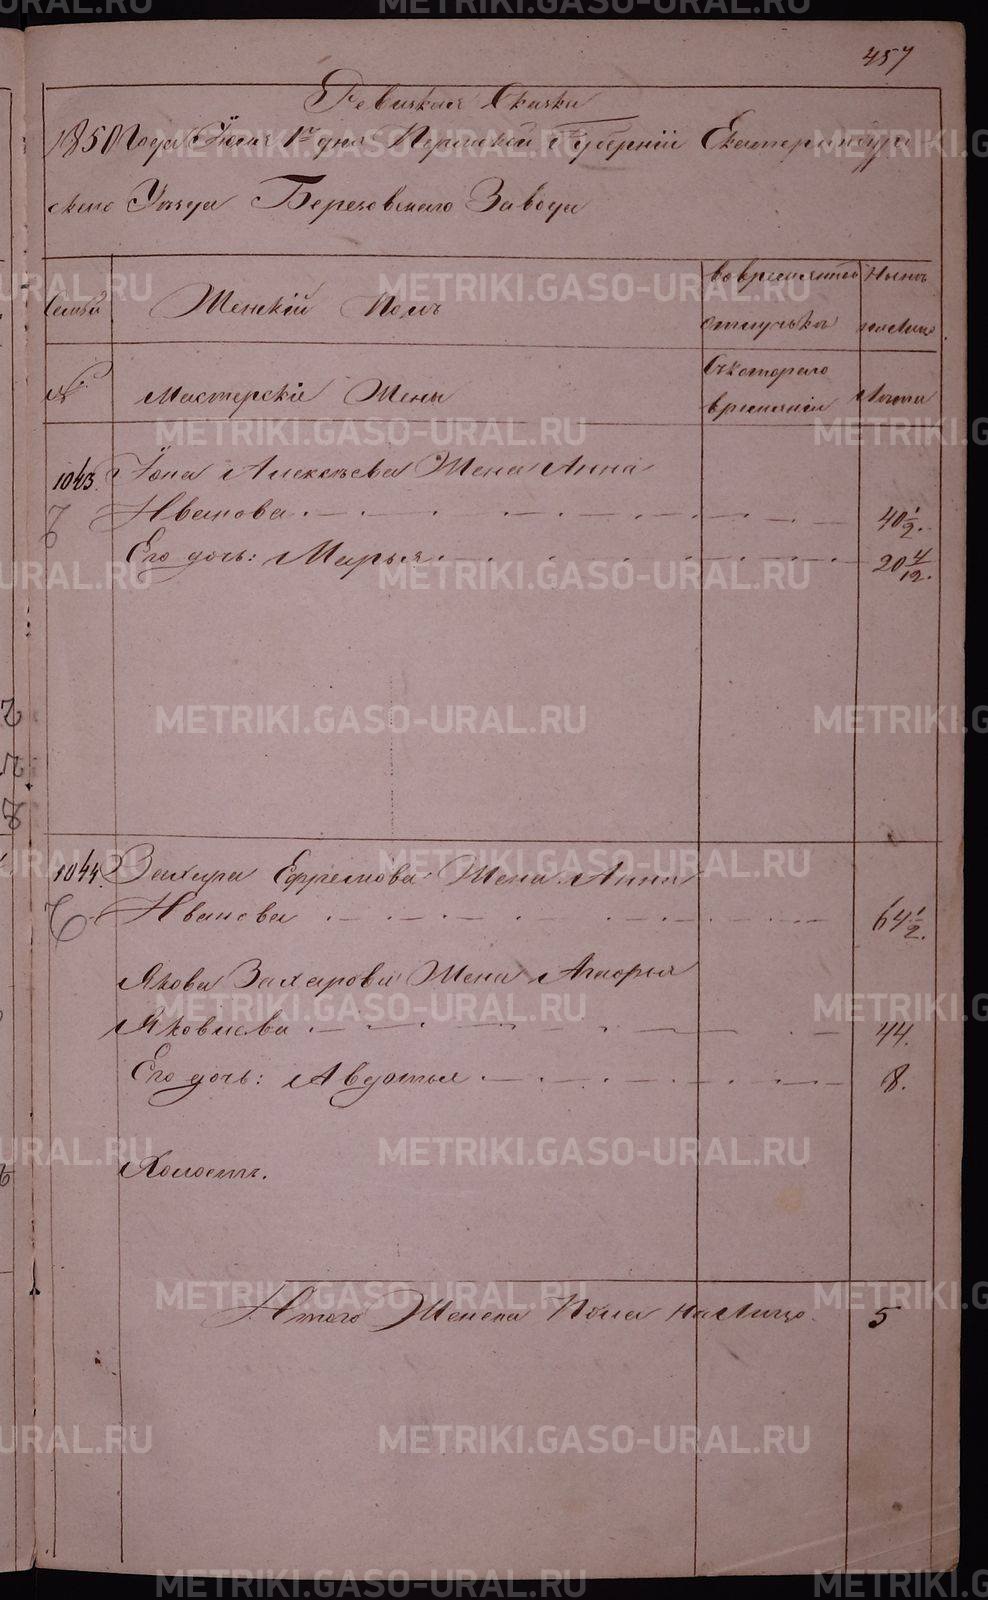 457
Ревизская Сказка
1850 Года Июля 1го дня Пермской Губернии Екатеринбург
скаго Уѣзда Березовскаго Завода
Семьи Женскій Полъ во временной отлучькѣ Нынѣ на лицо
№ Мастерскіе Жены Съ котораго времянии Лѣта
1043 Іона Алексѣева Жена Анна
Иванова 40 1/2.
Его дочь: Марья 20 4/12.
1044. Захара Ефремова Жена Анна
Иванова 64 1/2.
Якова Захарова Жена
Яковлева 44.
Его дочь: Авдотья 8.
Холостъ.
Итого Женска Пола на Лицо 5
METRIKI.GASO-URAL.RU